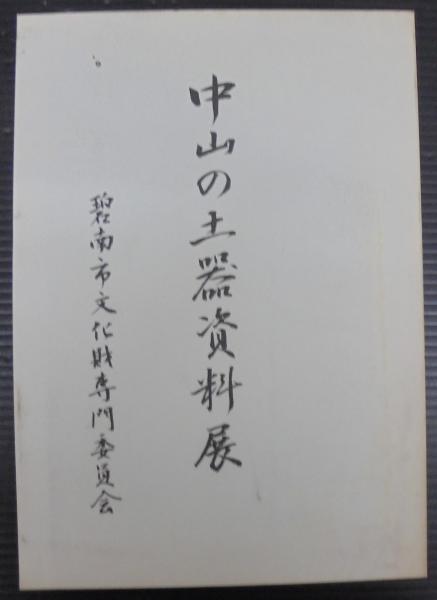 中山の土器資料展
碧南市文化財専門委員会